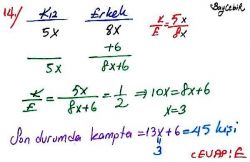 BayÇebir
14) Kız Erkek K/E = 5x/8x
5x 8x
+6
5x 8x+6
K/E = 5x/8x+6 = 1/2 ⇒ 10x = 8x+6
x=3
Son durumda kampta = 13x+6 = 45 kişi
3
CEVAP: E